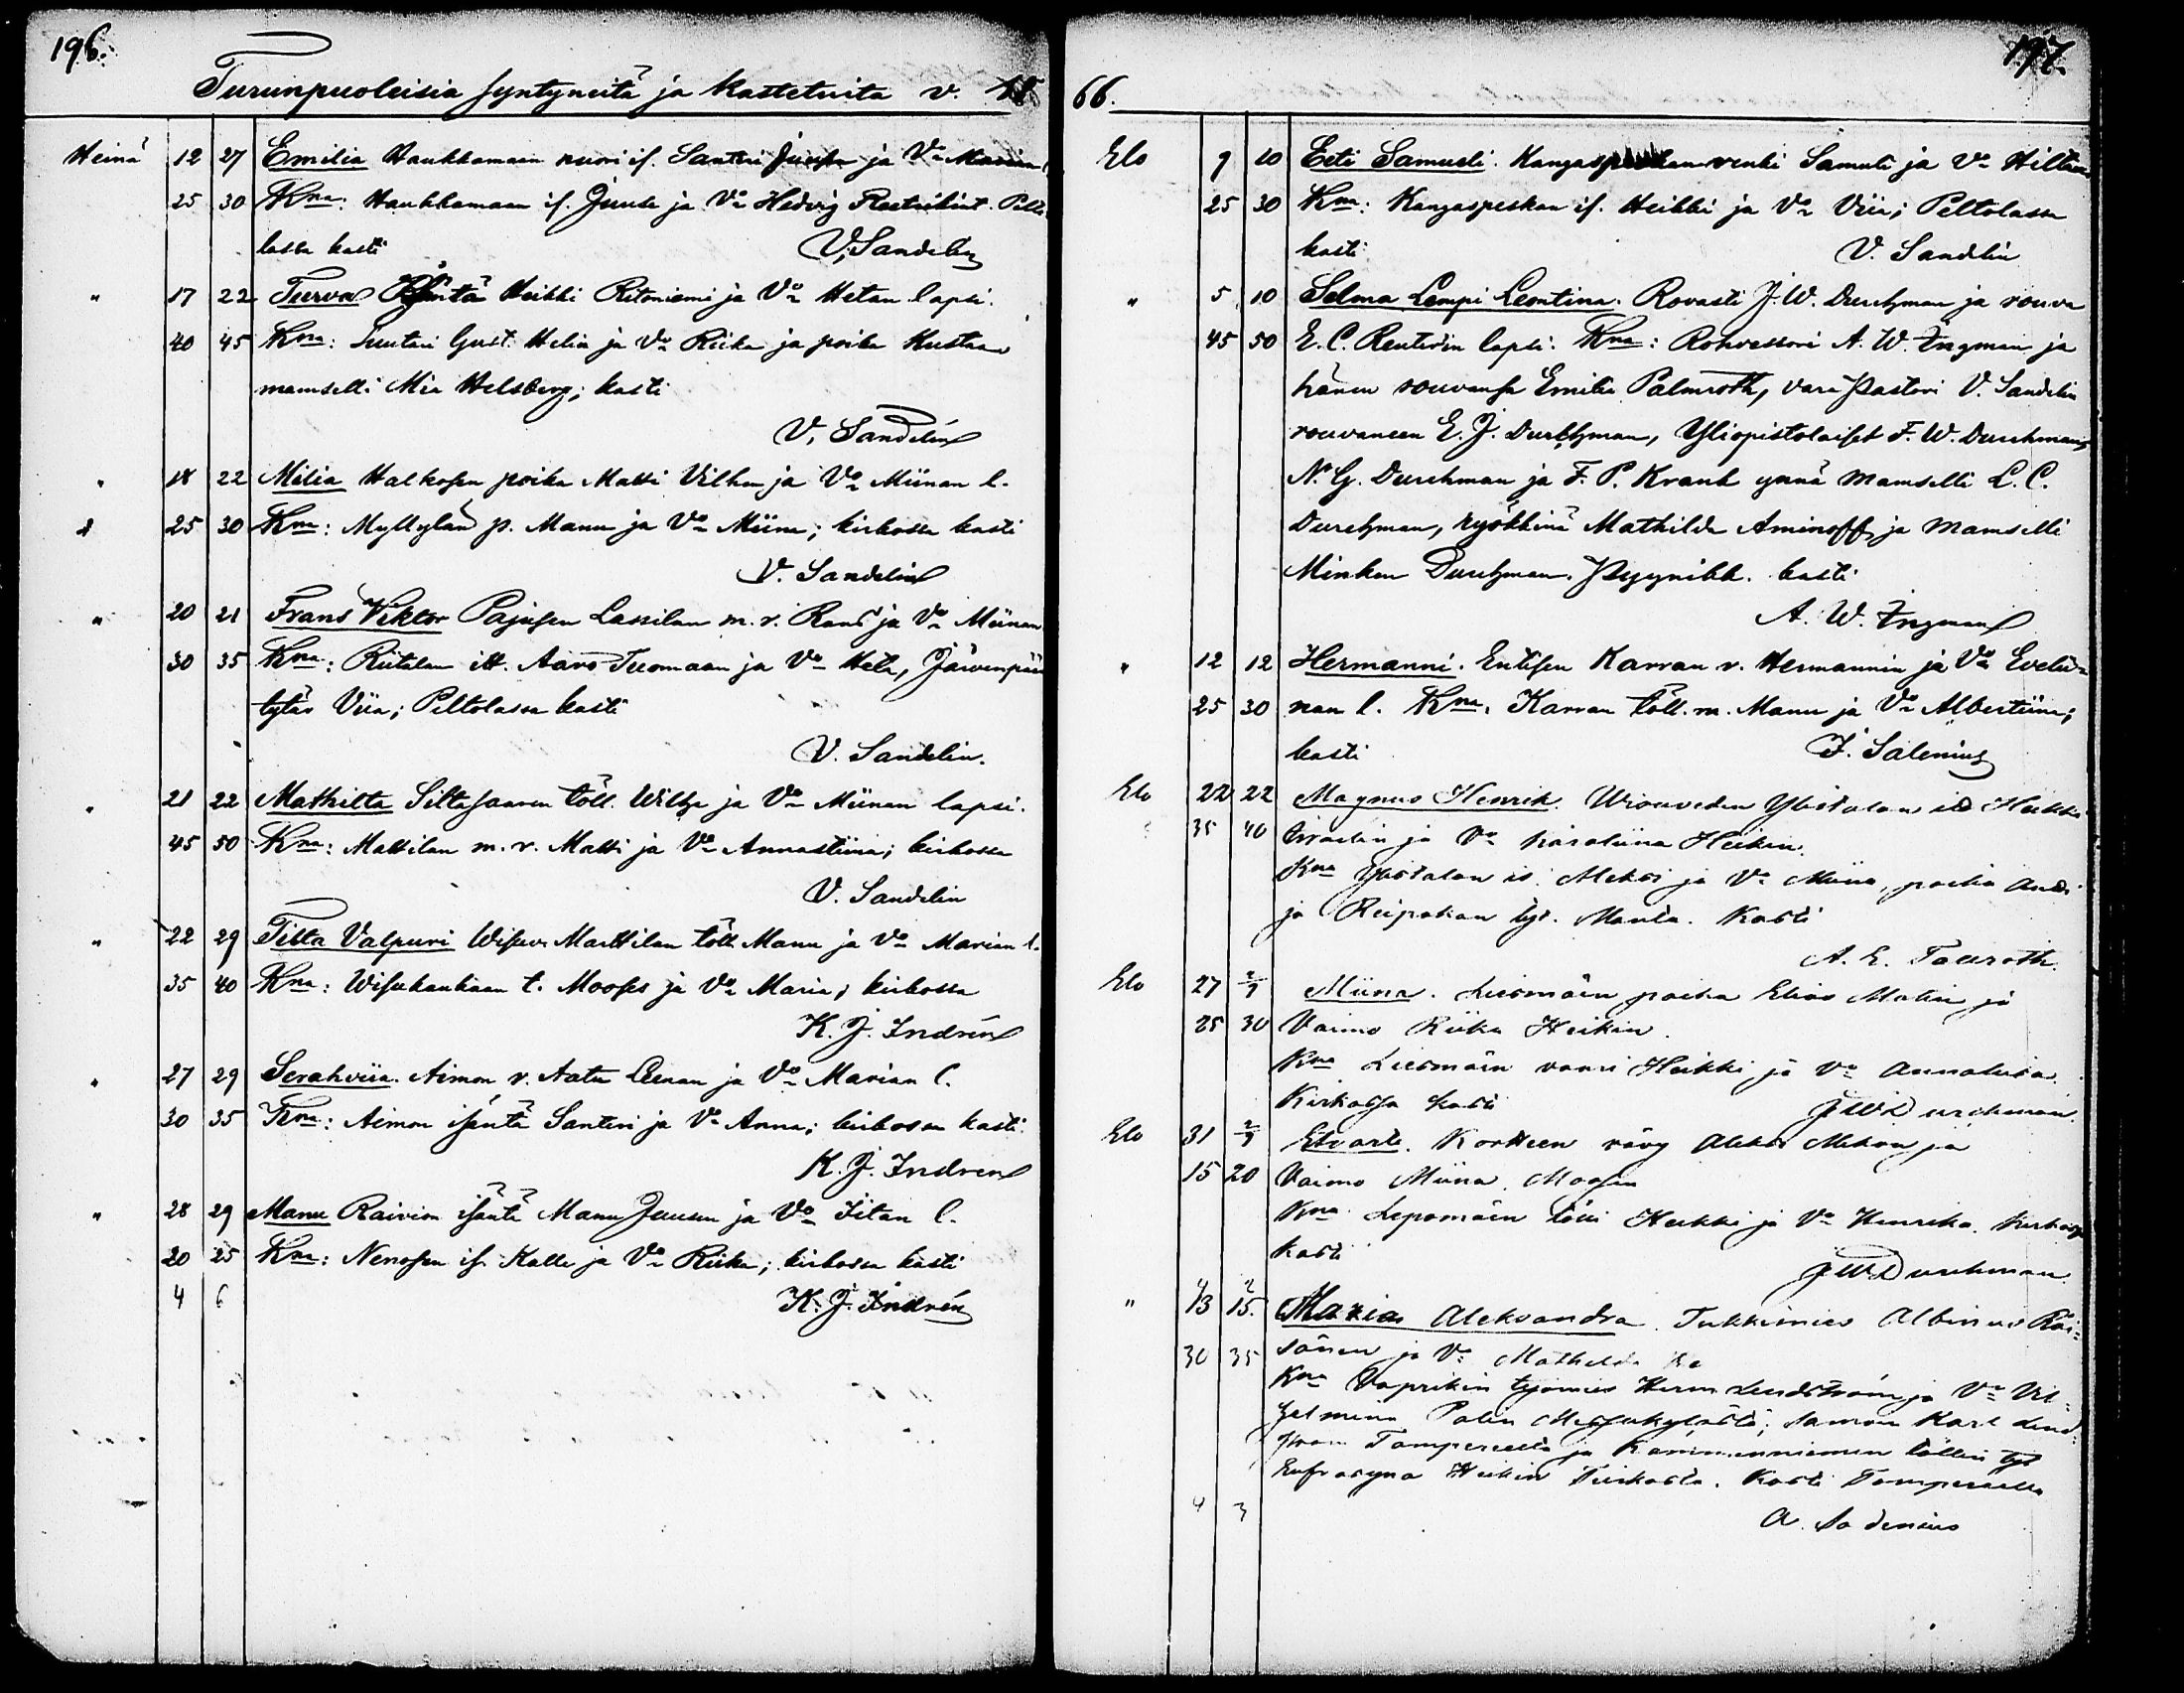 196.
Turunpuoleisia syntyneitä ja kastetuita v. 18
Heinä 12 27 Emilia Haukkamaan nuori is. Santeri Juusen ja Vo Marian
25 30 Kna: Haukkamaan is. Juuse ja Vo Hedvig Peltolassa kasti V. Sandelin
" 17 22 Turva Isäntä Heikki Ritoniemi ja Vo Hetan lapsi.
40 45 Kna: Suutari Gust. Helin ja Vo Riika ja poika Kustaa
mamselli Mia Helsberg; kasti
V. Sandelin
" 18 22 Milia Halkosen poika Matti Vilhon ja Vo Miinan l.
" 25 30 Kna: Myllylän p. Manu ja Vo Miina; kirkossa kasti
V. Sandelin
" 20 21 Frans Viktor Pajusen Lassilan m. r. Rans ja Vo Miinan
30 35 Kna: Riitalan itt. Aaro Tuomaan ja Vo Heta, Järvenpään
tytär Viia; Peltolassa kasti
V. Sandelin.
" 21 22 Mathilta Siltasaaren töll. Wilhe ja Vo Miinan lapsi.
45 50 Kna: Mattilan m. r. Matti ja Vo Annastiina; kirkossa
V. Sandelin
" 22 29 Tilta Valpuri Wisuv. Marttilan töll. Manu ja Vo Marian l.
35 40 Kna: Wisukankaan t. Mooses ja Vo Maria; kirkossa
K. J. Indrén
" 27 29 Serahviia. Aimon r. Aatu Leenan ja Vo Marian l.
30 35 Kna: Aimon isäntä Santeri ja Vo Anna; kirkossa kasti
K. J. Indren
" 28 29 Manu Raivion isäntä Manu Juusen ja Vo Iitan l.
20 25 Kna: Nenosen is. Kalle ja Vo Riika; kirkossa kasti
4 6 K. J. Indrén
197.
66.
Elo 9 10 Eeti Samueli. Kangaspeskan renki Samuli ja Vo Hiltan
25 30 Kna: Kangaspeskan is. Heikki ja Vo Viia; Peltolassa
kasti V. Sandelin
" 5 10 Selma Lempi Leontina. Rovasti J. W. Durchman ja rouva
45 50 E. C. Reuterin lapsi. Kna: Rohvessori A. W. Ingman ja
hänen rouvansa Emilia Palmroth, vara Pastori V. Sandelin
rouvaneen E. J. Durchman, Yliopistolaiset F. W. Durchman,
N. G. Durchman ja F. P. Krank ynnä Mamselli L. C.
Durchman, ryökkinä Mathilda Aminoff ja Mamselli
Minken Durchman. Pyynikk. kasti
A. W. Ingman
" 12 12 Hermanni. Entisen Karran r. Hermannin ja Vo Eveli-
25 30 nan l. Kna: Karran töll. m. Manu ja Vo Albertiina;
kasti F. Salenius
Elo 22 22 Magnus Henrik. Yliotalon is Heikki
35 40 ja Vo Karoliina Heikin.
Kna Yliotalon is. Matti ja Vo Miina, poika Anti
ja Reipakan tyt. Manta. Kasti
A. E. Tauroth.
Elo 27 2/9 Miina. Liesmäen poika Elias Matin ja
25 30 Vaimo Riika Heikin.
Kna Liesmäen vaari Heikki ja Vo Annaliisa.
Kirkossa kasti J W Durchman.
Elo 31 2/9 Etvarti. Kortteen Aleksi ja
15 20 Vaimo Miina
Kna Lepomäen Heikki ja Vo Henrika. Kirkossa
kasti
J W Durchman.
" 13 15. Maria Aleksandra. Tukkimies Albinus Räi-
30 35 sänen ja Vo Mathilda
Kna Vaprikin työmies Herm. Lindström ja Vo Vil-
helmina Palin Messukylästä; Karl Lind-
ström Tampereelta ja Kamminniemen töllin tyt
Eufrosyna Heikin Teiskosta. Kasti Tampereella
4 3 A. Sadenius